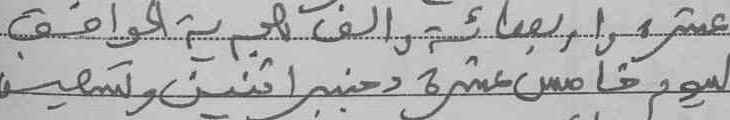 عشرة وأربعمائة وألف هجرية الموافق
ليوم خامس عشرة دجنبر اثنين وتسعين